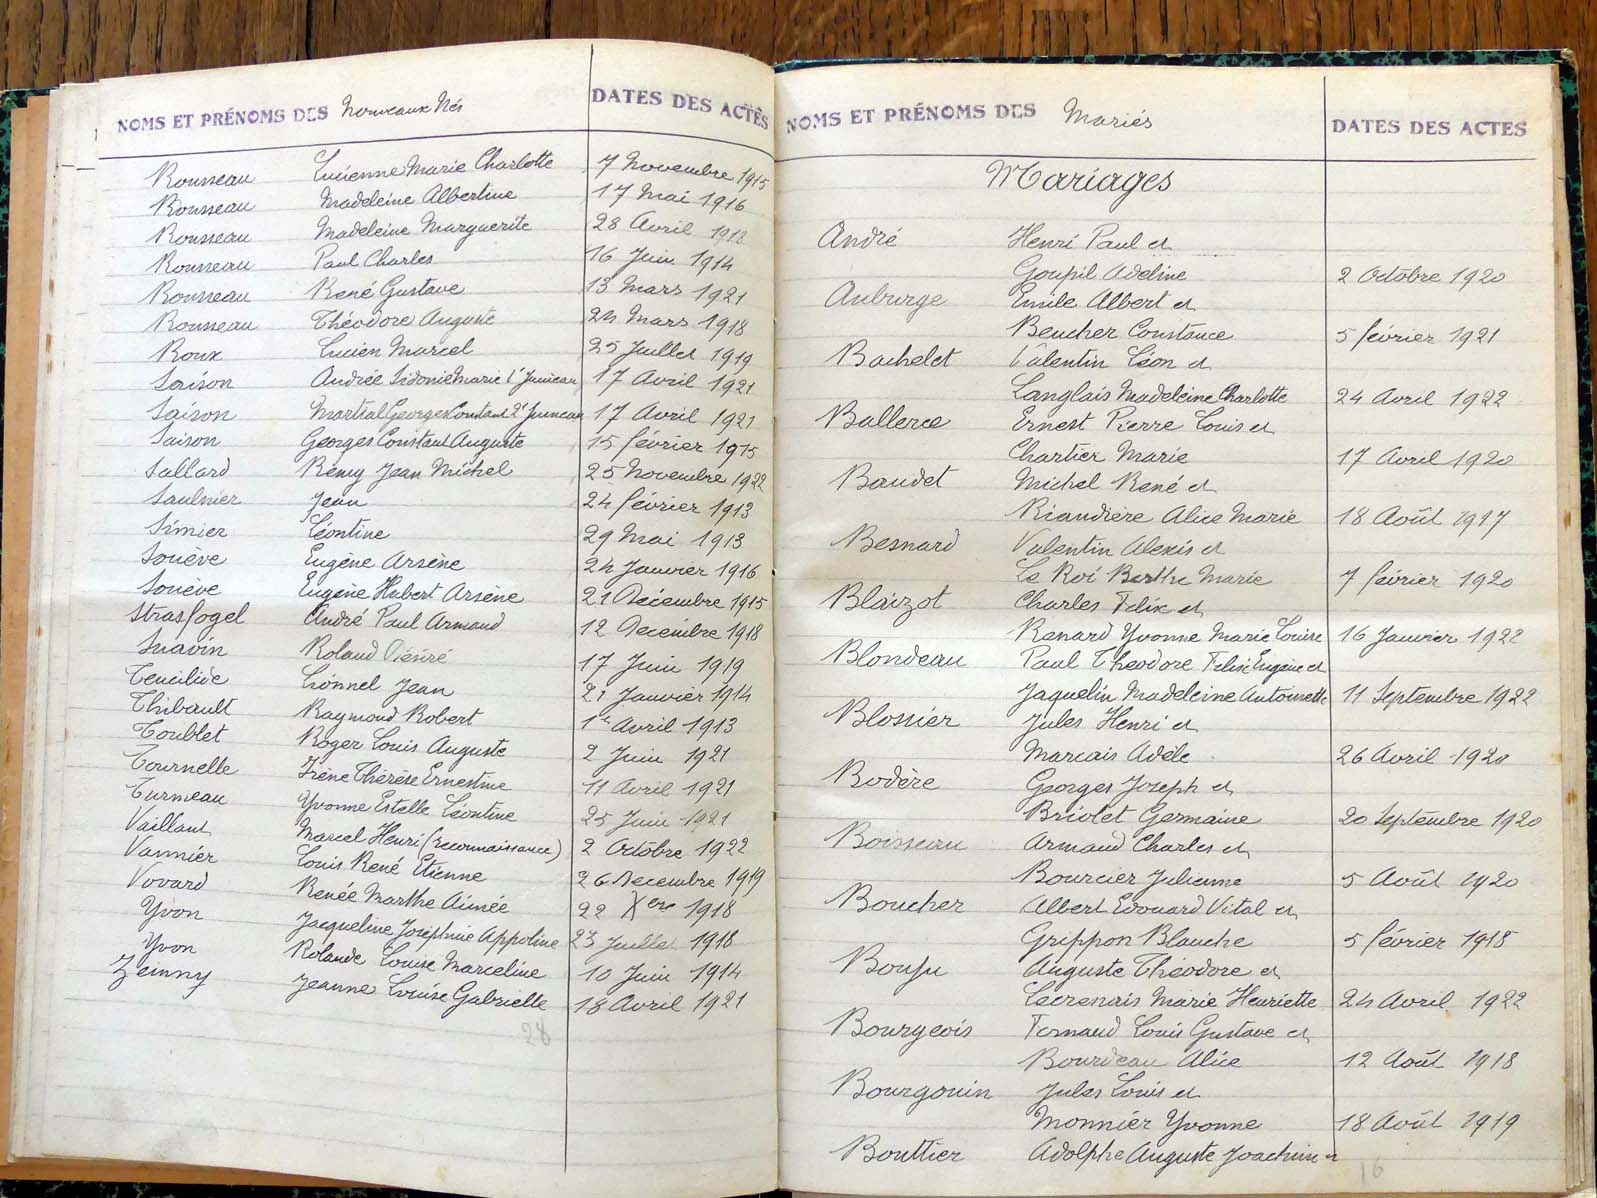 NOMS ET PRÉNOMS DES Nouveaux Nés DATES DES ACTES
Rousseau Lucienne Marie Charlotte 7 Novembre 1915
Rousseau Madeleine Albertine 17 Mai 1916
Rousseau Madeleine Marguerite 28 Avril 1918
Rousseau Paul Charles 16 Juin 1914
Rousseau René Gustave 13 Mars 1921
Rousseau Théodore Auguste 24 Mars 1918
Roux Lucien Marcel 25 Juillet 1919
Saison Andrée Sidonie Marie 1er Jumeau 17 Avril 1921
Saison Martial Georges Constant 2e Jumeau 17 Avril 1921
Saison Georges Constant Auguste 15 février 1915
Sallard Rémy Jean Michel 25 Novembre 1922
Saulnier Jean 24 février 1913
Simier Léontine 29 Mai 1913
Souève Eugène Arsène 24 Janvier 1916
Souève Eugène Hubert Arsène 21 Décembre 1915
Strasfogel André Paul Armand 12 Decembre 1918
Suavin Roland Désiré 17 Juin 1919
Lionnel Jean 21 Janvier 1914
Thibault Raymond Robert 1er Avril 1913
Toublet Roger Louis Auguste 2 Juin 1921
Tournelle Irène Thérèse Ernestine 11 Avril 1921
Turmeau Yvonne Estelle Léontine 25 Juin 1921
Vaillant Marcel Henri (Reconnaissance) 2 Octobre 1922
Vannier Louis René Etienne 26 Decembre 1919
Vovard Renée Marthe Aimée 22 Xbre 1918
Yvon Jacqueline Joséphine Appoline 23 Juillet 1918
Yvon Rolande Louise Marceline 10 Juin 1914
Zeinny Jeanne Louise Gabrielle 18 Avril 1921
28
NOMS ET PRÉNOMS DES Mariés DATES DES ACTES
Mariages
André Henri Paul et
Goupil Adeline 2 Octobre 1920
Auburge Emile Albert et
Beucher Constance 5 février 1921
Bachelet Valentin Léon et
Langlais Madeleine Charlotte 24 Avril 1922
Ballerce Ernest Pierre Louis et
Chartier Marie 17 Avril 1920
Baudet Michel René et
Riandière Alice Marie 18 Août 1917
Besnard Valentin Alexis et
Le Roi Berthe Marie 7 février 1920
Blaizot Charles Felix et
Renard Yvonne Marie Louise 16 Janvier 1922
Blondeau Paul Théodore Felix Eugène et
Jaquelin Madeleine Antoinette 11 Septembre 1922
Blossier Jules Henri et
Marcais Adèle 26 Avril 1920
Bodère Georges Joseph et
Briolet Germaine 20 Septembre 1920
Boisseau Armand Charles et
Bourcier Julienne 5 Août 1920
Boucher Albert Edouard Vital et
Grippon Blanche 5 février 1918
Bouju Auguste Théodore et
Marie Henriette 24 Avril 1922
Bourgeois Fernand Louis Gustave et
Bourdeau Alice 12 Août 1918
Bourgouin Jules Louis et
Monnier Yvonne 18 Août 1919
Bouttier Adolphe Auguste Joachim et
16